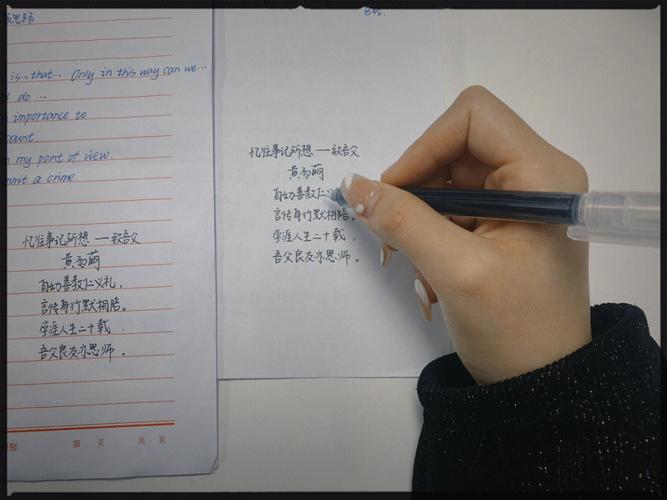 is that... Only in this way can we...
do ...
importance to
my point of view.
a crime.
忆往事记所想 一致吾父
黄初萌
自幼善教仁义礼，
言传身行默相陪。
学涯人生二十载，
吾父良友亦思师。
第 页 共 页
忆往事记所想 一致吾父
自幼善教仁义
言传身行默相陪。
学涯人生二十载，
吾父良友亦思师.